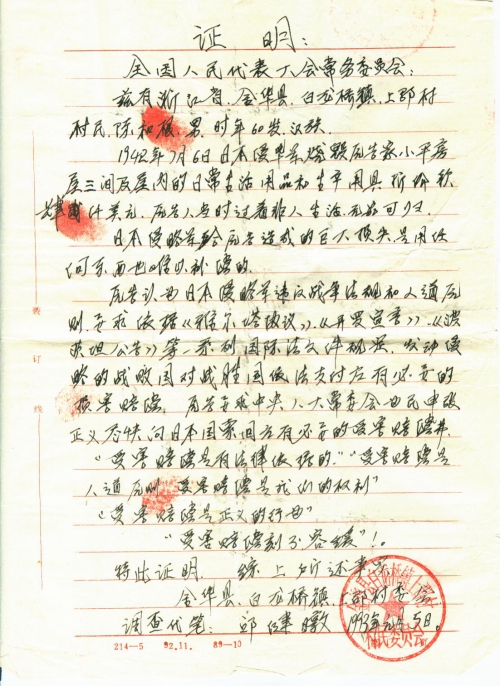 证 明：
全国人民代表大会常务委员会：
兹有浙江省、金华县、白龙桥镇、上邵村
村民、陈和根、男、时年60岁、汉族
1942年7月6日日本侵华军烧毁原告家小平房
屋三间及屋内的日常生活用品和生产用具折价秋
仟美元、原告人当时过着非人生活、无家可归、
日本侵略军给原告造成的巨大损失是用任
何东西也难以补偿的、
原告认为日本侵略军违议战争法规和人道原
则、要求依据《雅尔塔协议》、《开罗宣言》、《波
茨坦公告》等一系列国际法文件规定、发动侵
略的战败国对战胜国依法支付左有必要的
损害赔偿、原告要求中央人大常委会为民申张
正义尽快向日本国索回左有必要的受害赔偿、
“受害赔偿是有法律依据的” “受害赔偿是
人道原则 受害赔偿是我们的权利”
“受害赔偿是正义的行为”
“受害赔偿刻不容缓”！。
特此证明、综上所述事实
金华县、白龙桥镇、上邵村委
调查代笔：邵 1993年 5日
装
订
线
214—5 92.11. 89—10
村民委员会